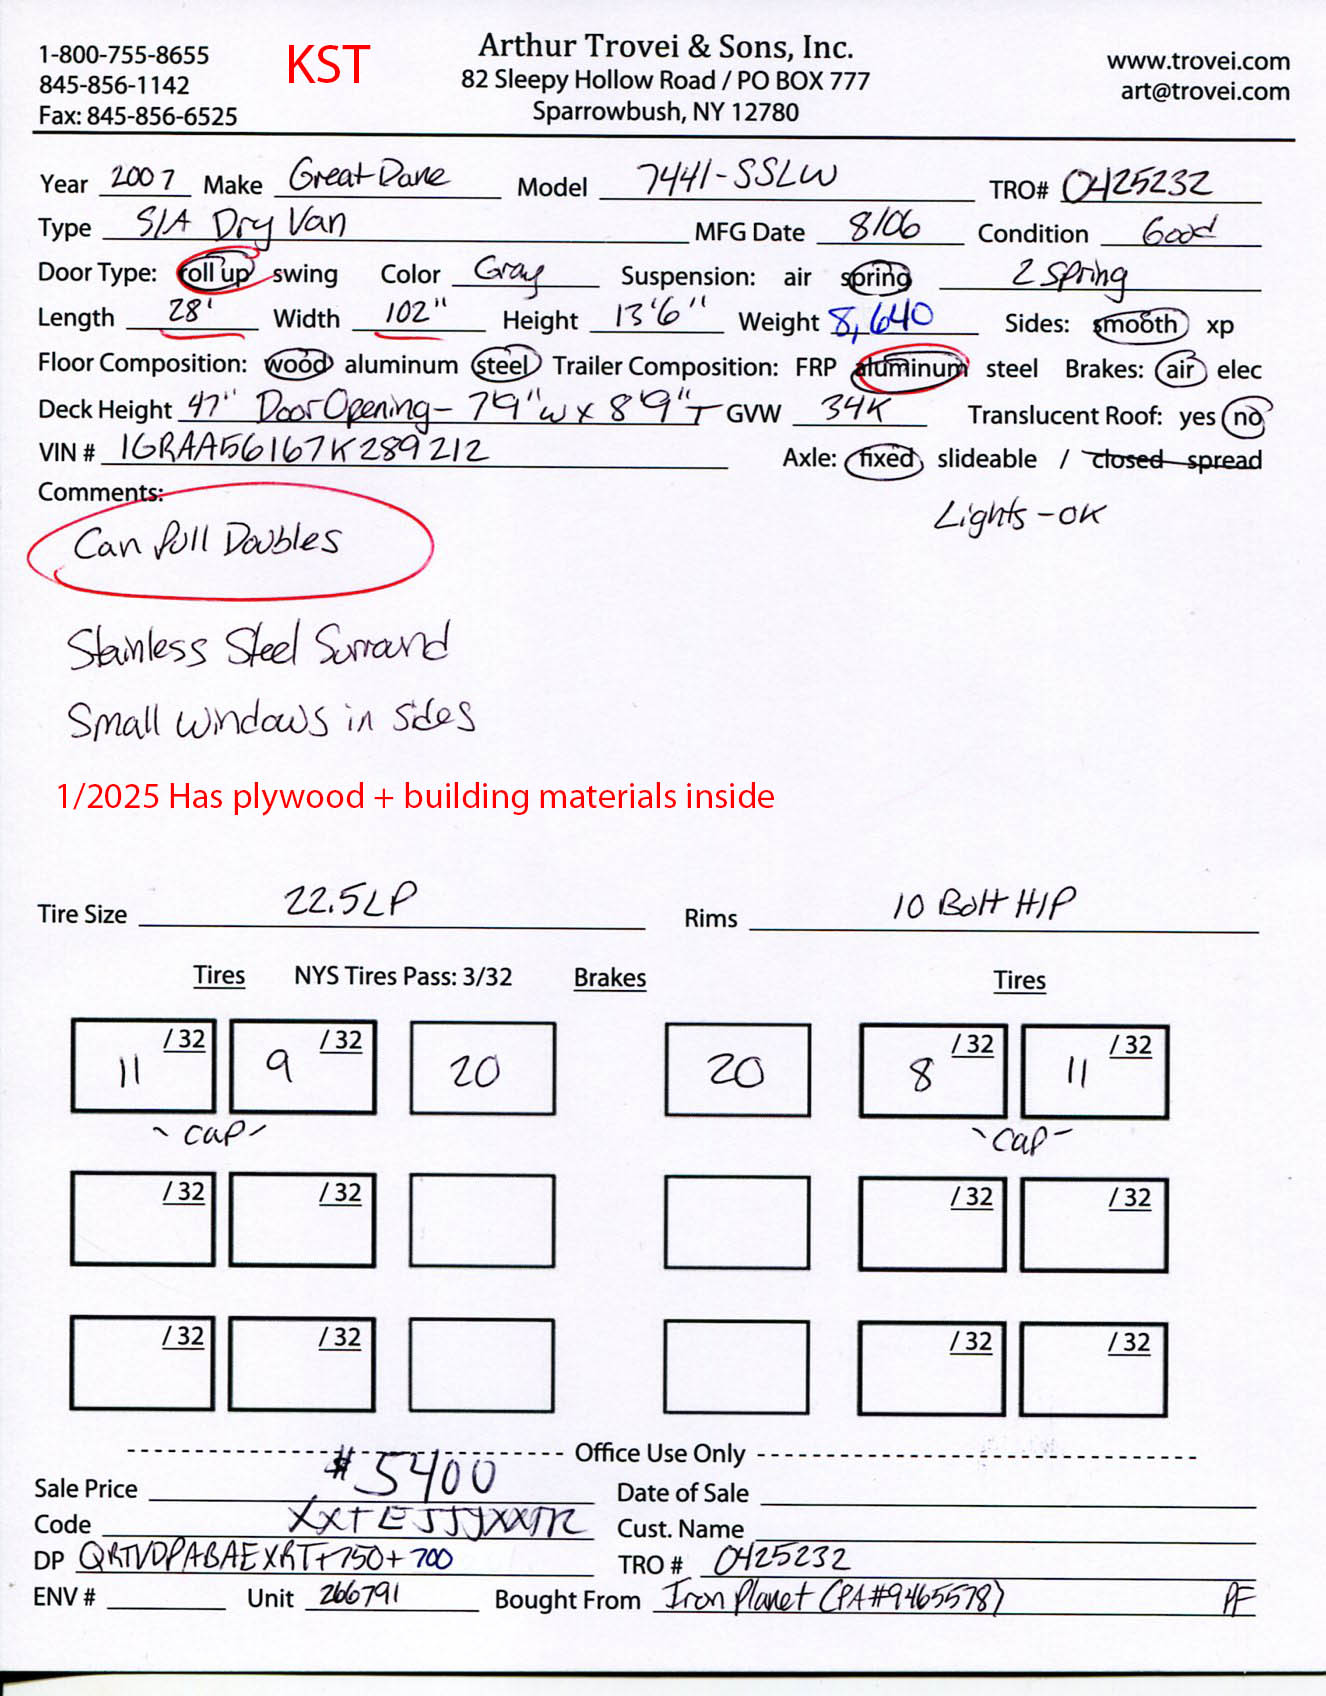 1-800-755-8655
845-856-1142
Fax: 845-856-6525
KST
Arthur Trovei & Sons, Inc.
82 Sleepy Hollow Road / PO BOX 777
Sparrowbush, NY 12780
www.trovei.com
art@trovei.com
Year 2007 Make Great Dane Model 7441-SSLW TRO# 0425232
Type S/A Dry Van MFG Date 8/06 Condition Good
Door Type: roll up swing Color Gray Suspension: air spring 2 Spring
Length 28' Width 102" Height 13'6" Weight 8,640 Sides: smooth xp
Floor Composition: wood aluminum steel Trailer Composition: FRP aluminum steel Brakes: air elec
Deck Height 47" Door Opening - 7'9"W x 8'9"T GVW 34K Translucent Roof: yes no
VIN # 1GRAA56167K289212 Axle: fixed slideable / closed spread
Comments:
Lights - OK
Can Pull Doubles
Stainless Steel Surround
Small Windows in Sides
1/2025 Has plywood + building materials inside
Tire Size 22.5LP Rims 10 Bolt H/P
Tires NYS Tires Pass: 3/32 Brakes Tires
11 /32 9 /32 20 20 8 /32 11 /32
~ cap ~ ~ cap ~
/32 /32 /32 /32
/32 /32 /32 /32
Office Use Only
Sale Price $5400 Date of Sale
Code Cust. Name
DP QRTVDPABAEXRT+750+700 TRO # 0425232
ENV # Unit 266791 Bought From Iron Planet (PA#9465578) PF